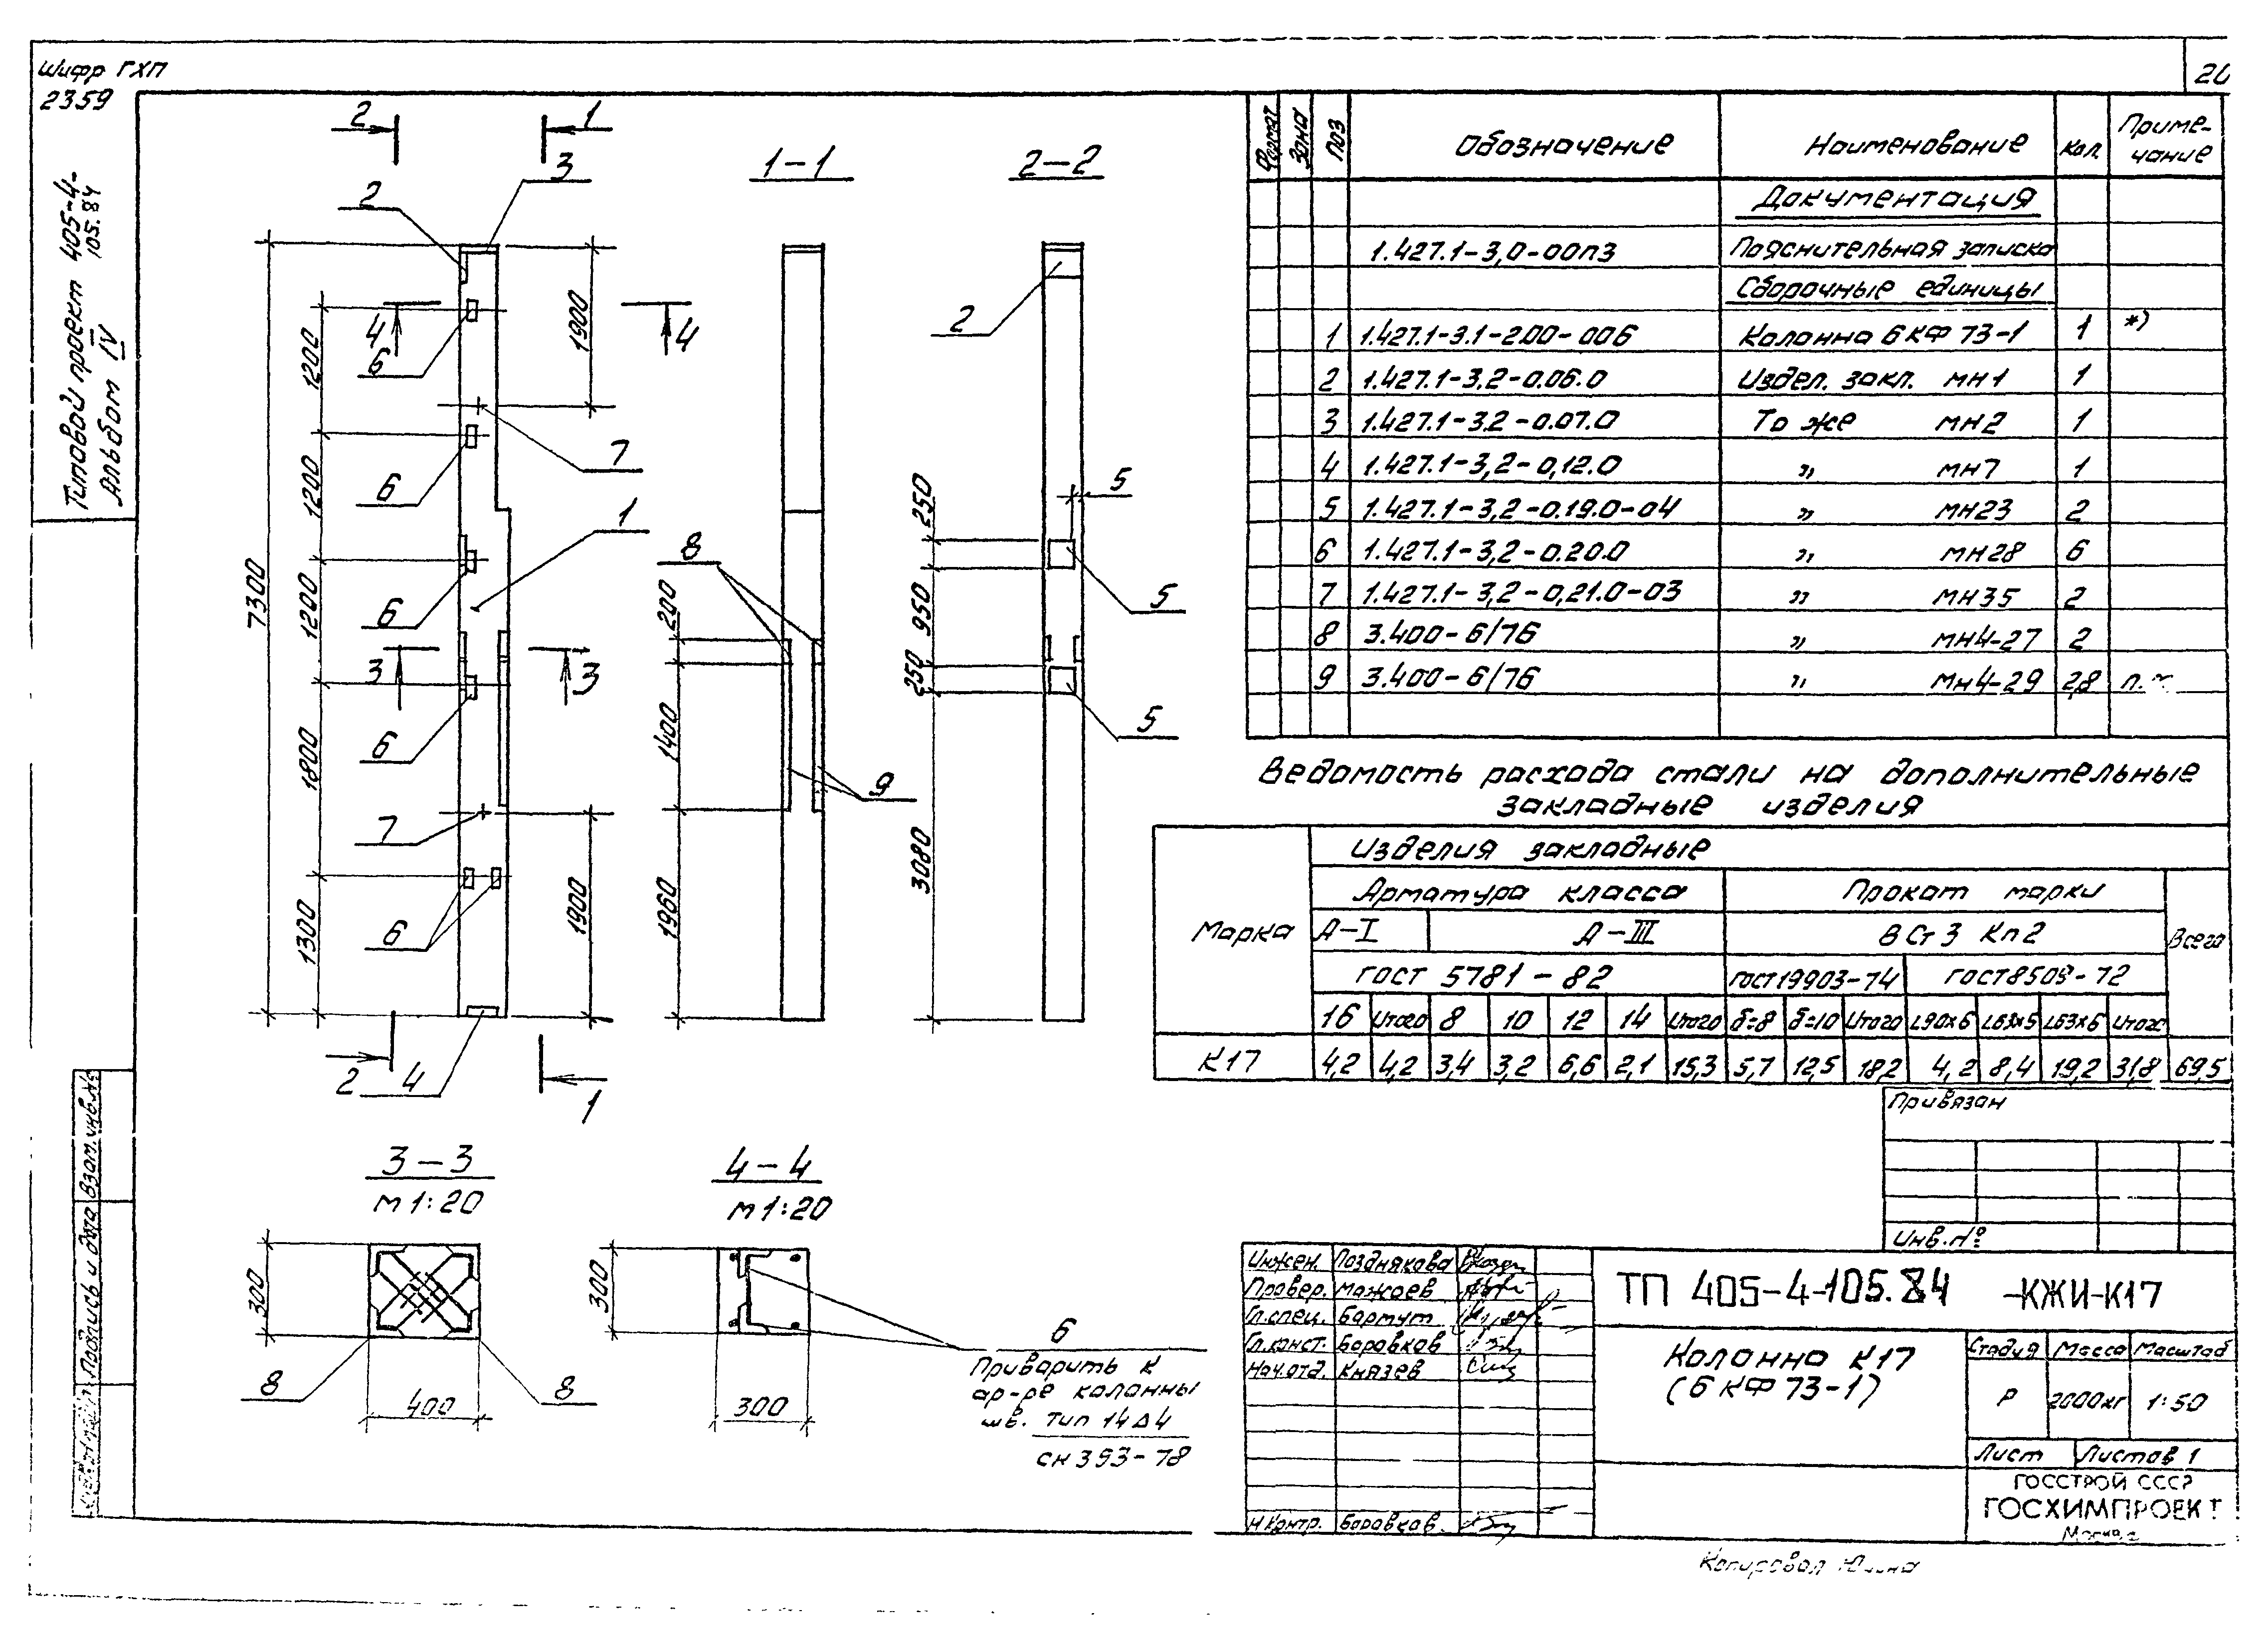 Шифр ГХП
2359
Типовой проект 405-4-105.84
Альбом IV
2
1
3
2
1-1
2-2
4
4
6
1900
1200
7
6
1200
1
6
1200
7300
3
3
6
1800
7
6
1300
1900
2
4
1
8
200
1400
9
1960
2
5
250
950
5
250
5
3080
3-3
М 1:20
300
400
8
8
4-4
М 1:20
300
300
6
Приварить к
ар-ре колонны
шв. тип 14Δ4
СН 393-78
Формат Зона Поз Обозначение Наименование Кол. Приме-чание
Документация
1.427.1-3,0-00ПЗ Пояснительная записка
Сборочные единицы
1 1.427.1-3.1-2.00-006 Колонна 6КФ73-1 1 *)
2 1.427.1-3,2-0.06.0 Издел. закл. МН1 1
3 1.427.1-3.2-0.07.0 То же МН2 1
4 1.427.1-3,2-0,12.0 " МН7 1
5 1.427.1-3,2-0.19.0-04 " МН23 2
6 1.427.1-3,2-0.20.0 " МН28 6
7 1.427.1-3,2-0,21.0-03 " МН35 2
8 3.400-6/76 " МН4-27 2
9 3.400-6/76 " МН4-29 2,8
Ведомость расхода стали на дополнительные
закладные изделия
Марка Изделия закладные
Арматура класса Прокат марки Всего
А-I А-III ВСт3 Кп2
ГОСТ 5781-82 ГОСТ19903-74 ГОСТ8509-72
16 Итого 8 10 12 14 Итого δ=8 δ=10 Итого L90x6 L63x5 L63x6 Итого
К17 4,2 4,2 3,4 3,2 6,6 2,1 15,3 5,7 12,5 18,2 4,2 8,4 19,2 31,8 69,5
Привязан
Инв.№
Инжен. Позднякова
Провер. Мажаев
Гл.спец. Бартут
Гл.конст. Боровков
Нач.отд. Князев
Н.Контр. Боровков
ТП 405-4-105.84 -КЖИ-К17
Колонна К17
(6КФ73-1)
Стадия Масса Масштаб
Р 2000кг 1:50
Лист Листов 1
ГОССТРОЙ СССР
ГОСХИМПРОЕКТ
Москва
Взам.инв.№
Подпись и дата
Копировал